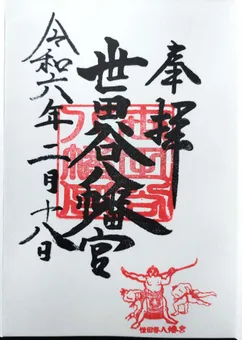 奉拝
世田谷八幡宮
令和六年二月十八日
世田谷八幡宮